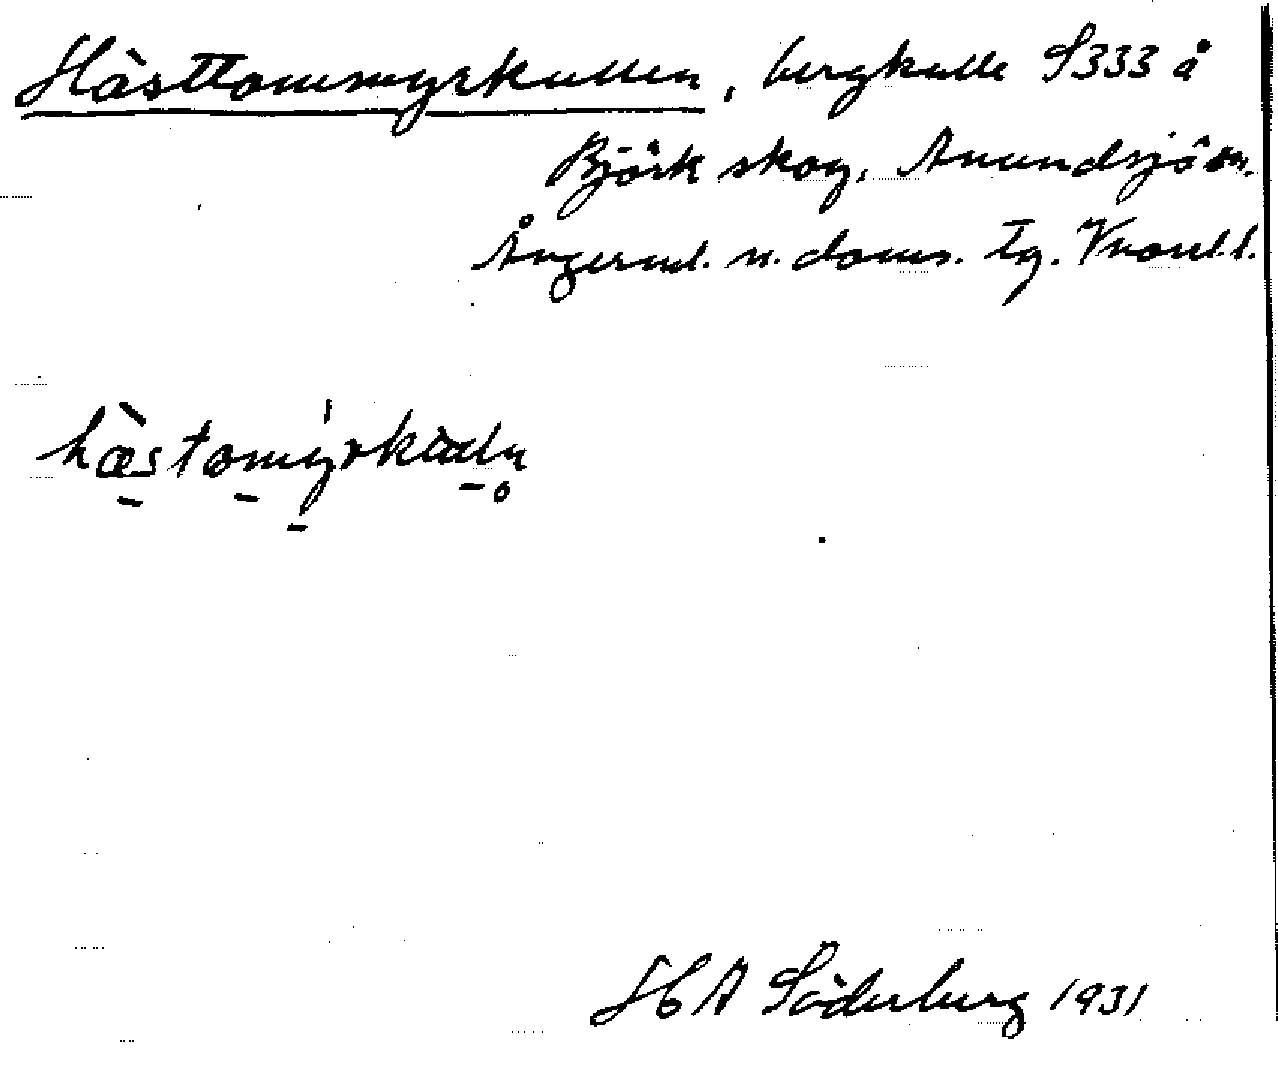 Hästtommyrkullen, bergkulle S333 å
Björk skog, Anundsjö sn.
Ångerml. n. doms. tg. Vnorrl. l.
hæstomyrkulln
H A Söderberg 1931